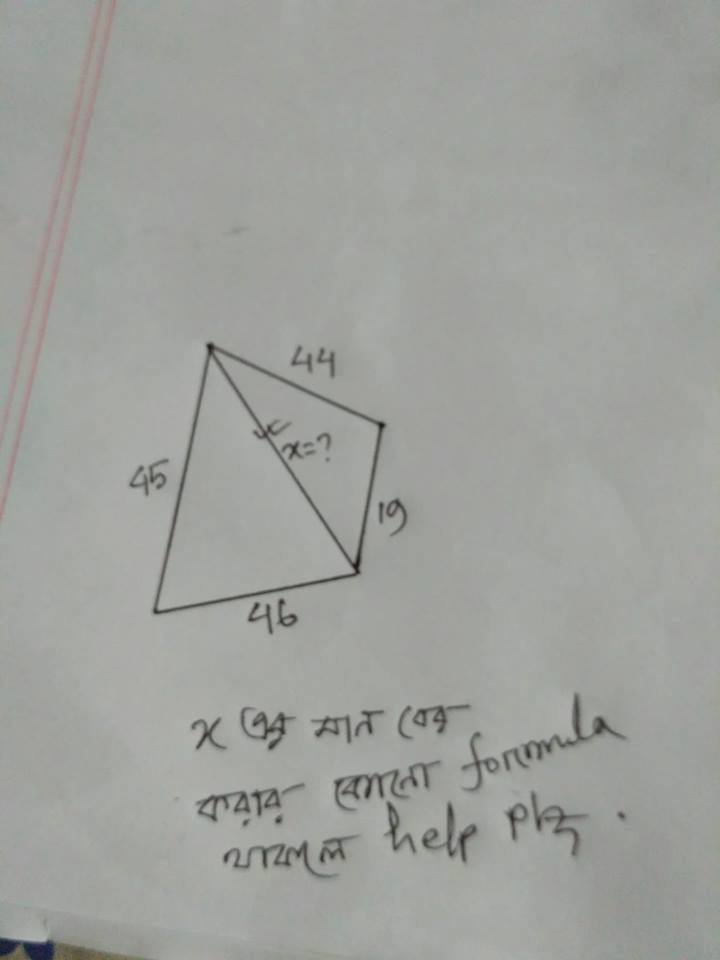 44
x=?
45
19
46
x এর মান বের
করার কোনো formula
থাকলে help plz .